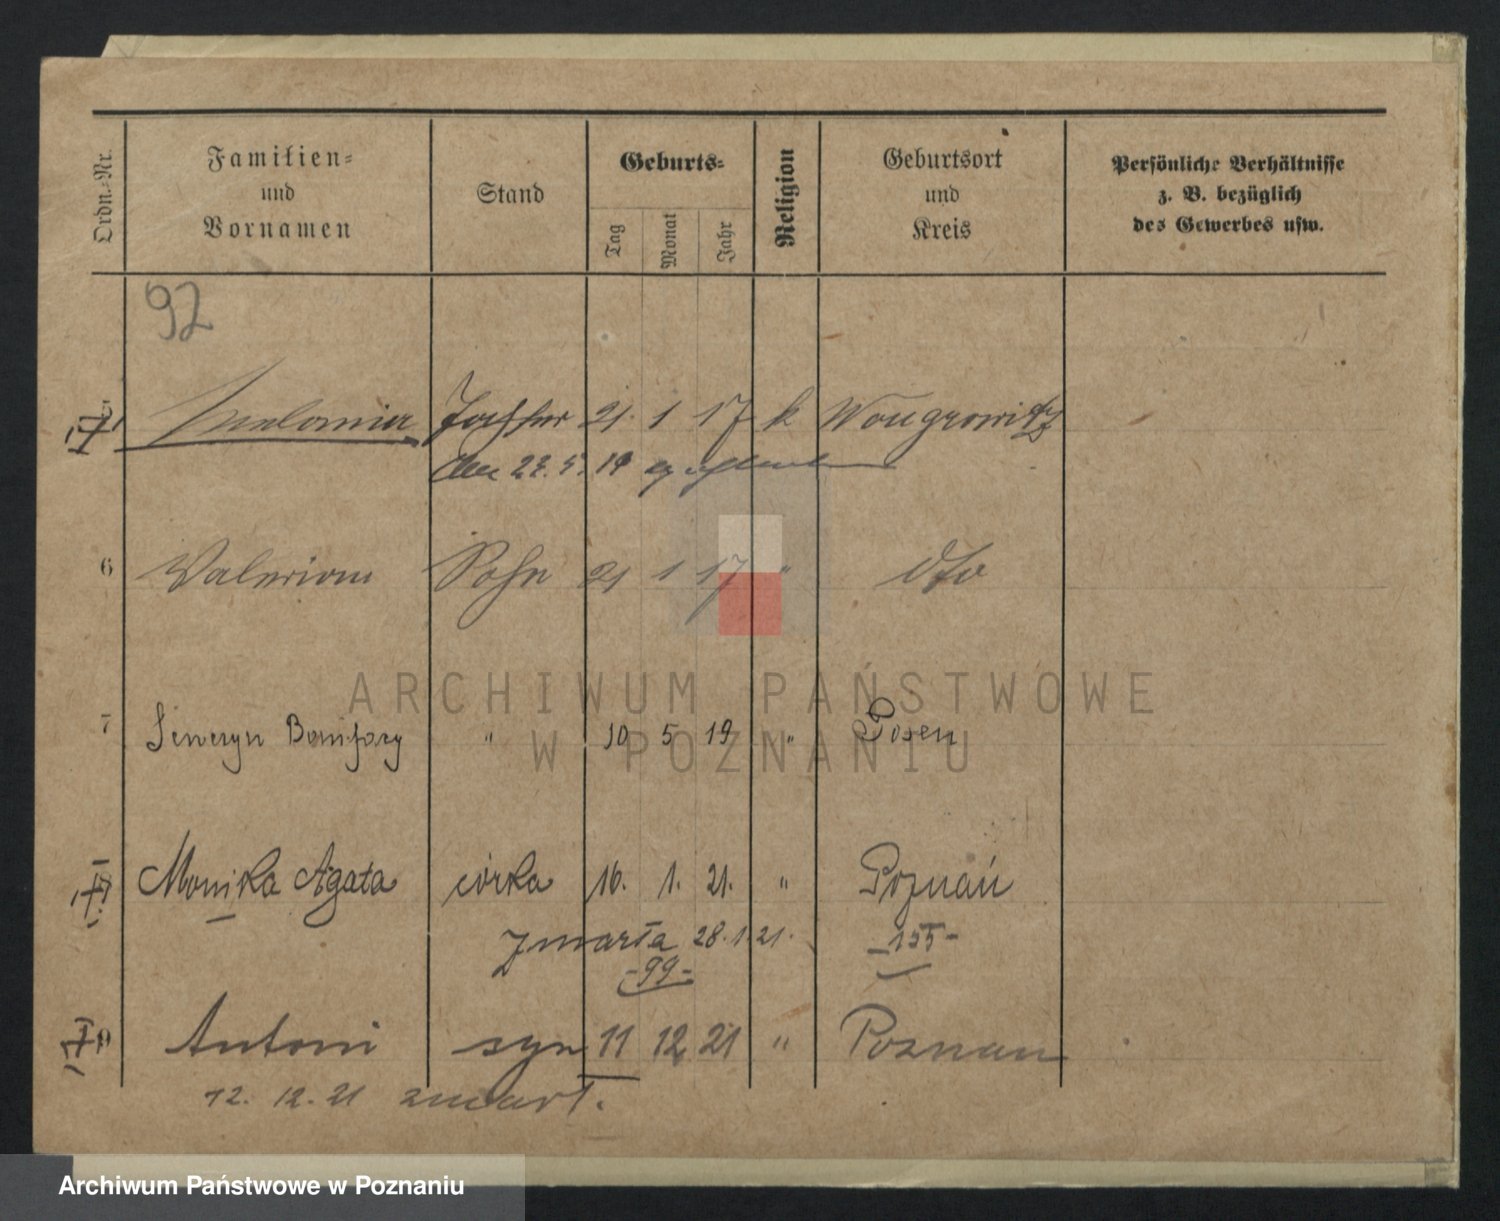 Ordn.-Nr.
Familien-
und
Vornamen
Stand
Geburts-
Tag
Monat
Jahr
Religion
Geburtsort
und
Kreis
Persönliche Verhältnisse
z. B. bezüglich
des Gewerbes usw.
92
Melania Tochter 21. 1 17 k Wongrowitz
den 22. 5. 19 gestorben
6 Valerian Sohn 21 1 17 " dto
7 Seweryn Bonifacy " 10 5 19 " Posen
Monika Agata córka 16. 1. 21. " Poznań
zmarła 28.1.21. -155-
-99-
9 Antoni syn 11 12 21 " Poznan
12. 12. 21 zmarł.
ARCHIWUM PAŃSTWOWE
W POZNANIU
Archiwum Państwowe w Poznaniu